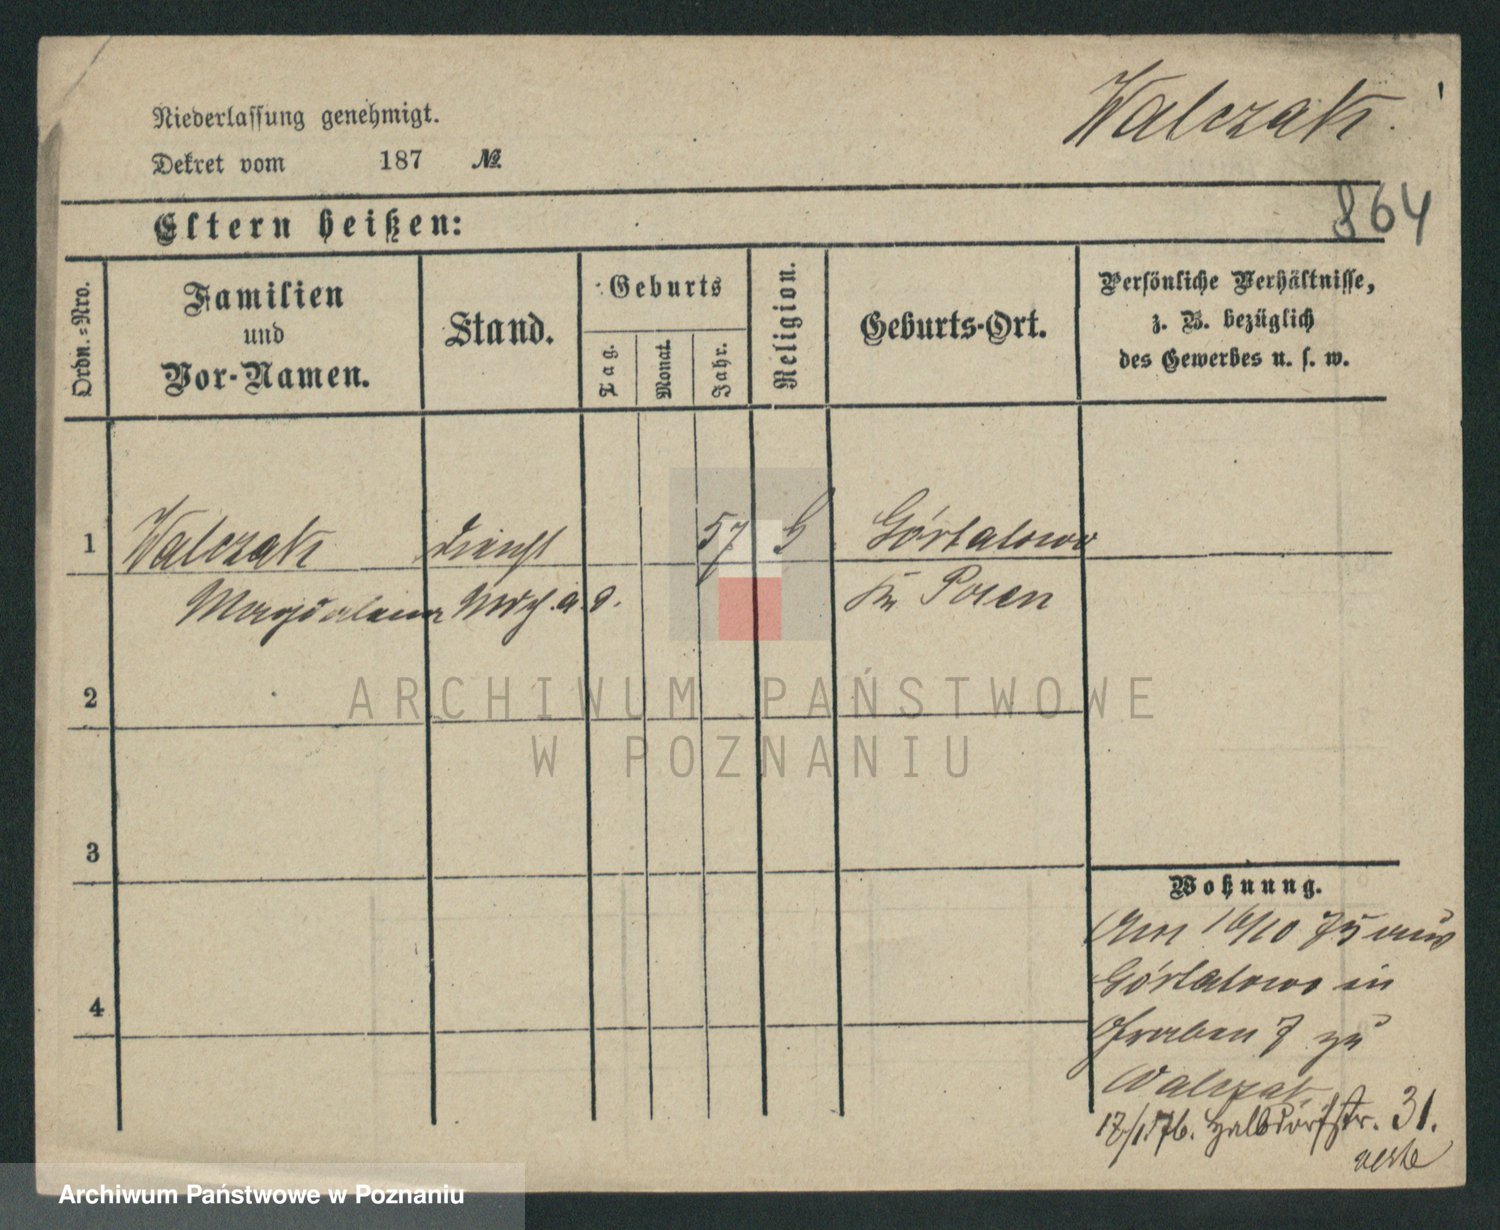 Niederlassung genehmigt.
Dekret vom 187 №
Walczak.
864
Eltern heißen:
Ordn.-Nro.
Familien
und
Vor-Namen.
Stand.
Geburts
Tag.
Monat.
Jahr.
Religion.
Geburts-Ort.
Persönliche Verhältnisse,
z. B. bezüglich
des Gewerbes u. s. w.
1 Walczak Dienst 57 Górtatowo
Magdalena Kr Posen
2
3
4
Wohnung.
Am 16/10 75 aus
Górtatowo in
Graben 7 zu
Walczak
Halbdorfstr. 31.
ARCHIWUM PAŃSTWOWE
W POZNANIU
Archiwum Państwowe w Poznaniu